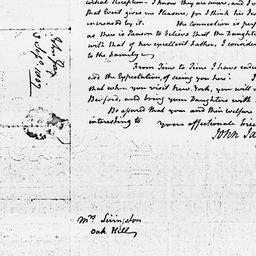 cordial Reception - I know they are amiable, and I
that Event gives me Pleasure, for I think his
increased by it. The connection is
as there is Reason to believe that the Daughter
with that of her excellent Father, I consider
to the Family
From Time to Time I have
and the Expectation, of seeing you here. I
that when you visit New York, you will
Bedford, and bring your Daughters with
Be assured that you and their welfare
interesting to your affectionate
John Ja
Mrs Livingston
Oak Hill
John Jay
3 Sept. 1807